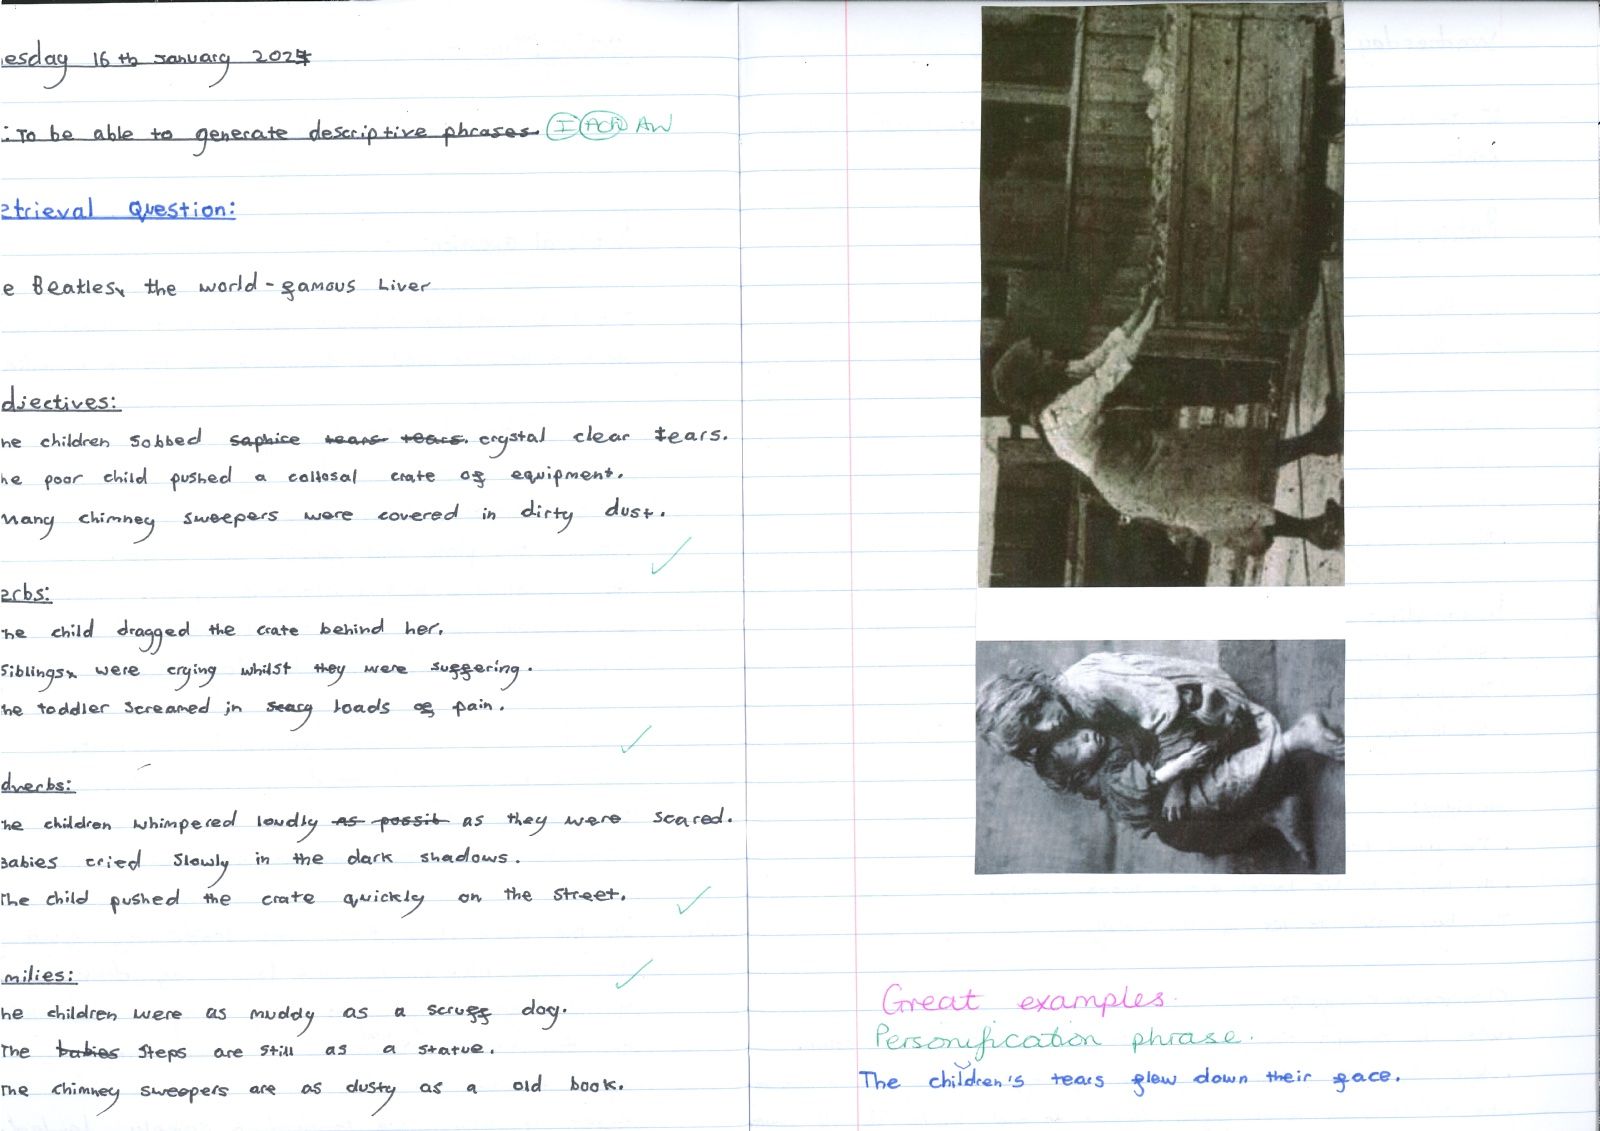 esday 16th January 2024
: To be able to generate descriptive phrases. I AW
etrieval Question:
e Beatles, the world-famous Liver
djectives:
he children sobbed saphice tears tears. crystal clear tears.
he poor child pushed a collosal crate of equipment.
Many chimney sweepers were covered in dirty dust.
erbs:
he child dragged the crate behind her.
Siblings were crying whilst they were suffering.
he toddler screamed in scary loads of pain.
dverbs:
he children whimpered loudly as possib as they were scared.
Babies cried slowly in the dark shadows.
The child pushed the crate quickly on the street.
milies:
he children were as muddy as a scruff dog.
The babies steps are still as a statue.
The chimney sweepers are as dusty as a old book.
Great examples.
Personification phrase.
The children's tears flew down their face.